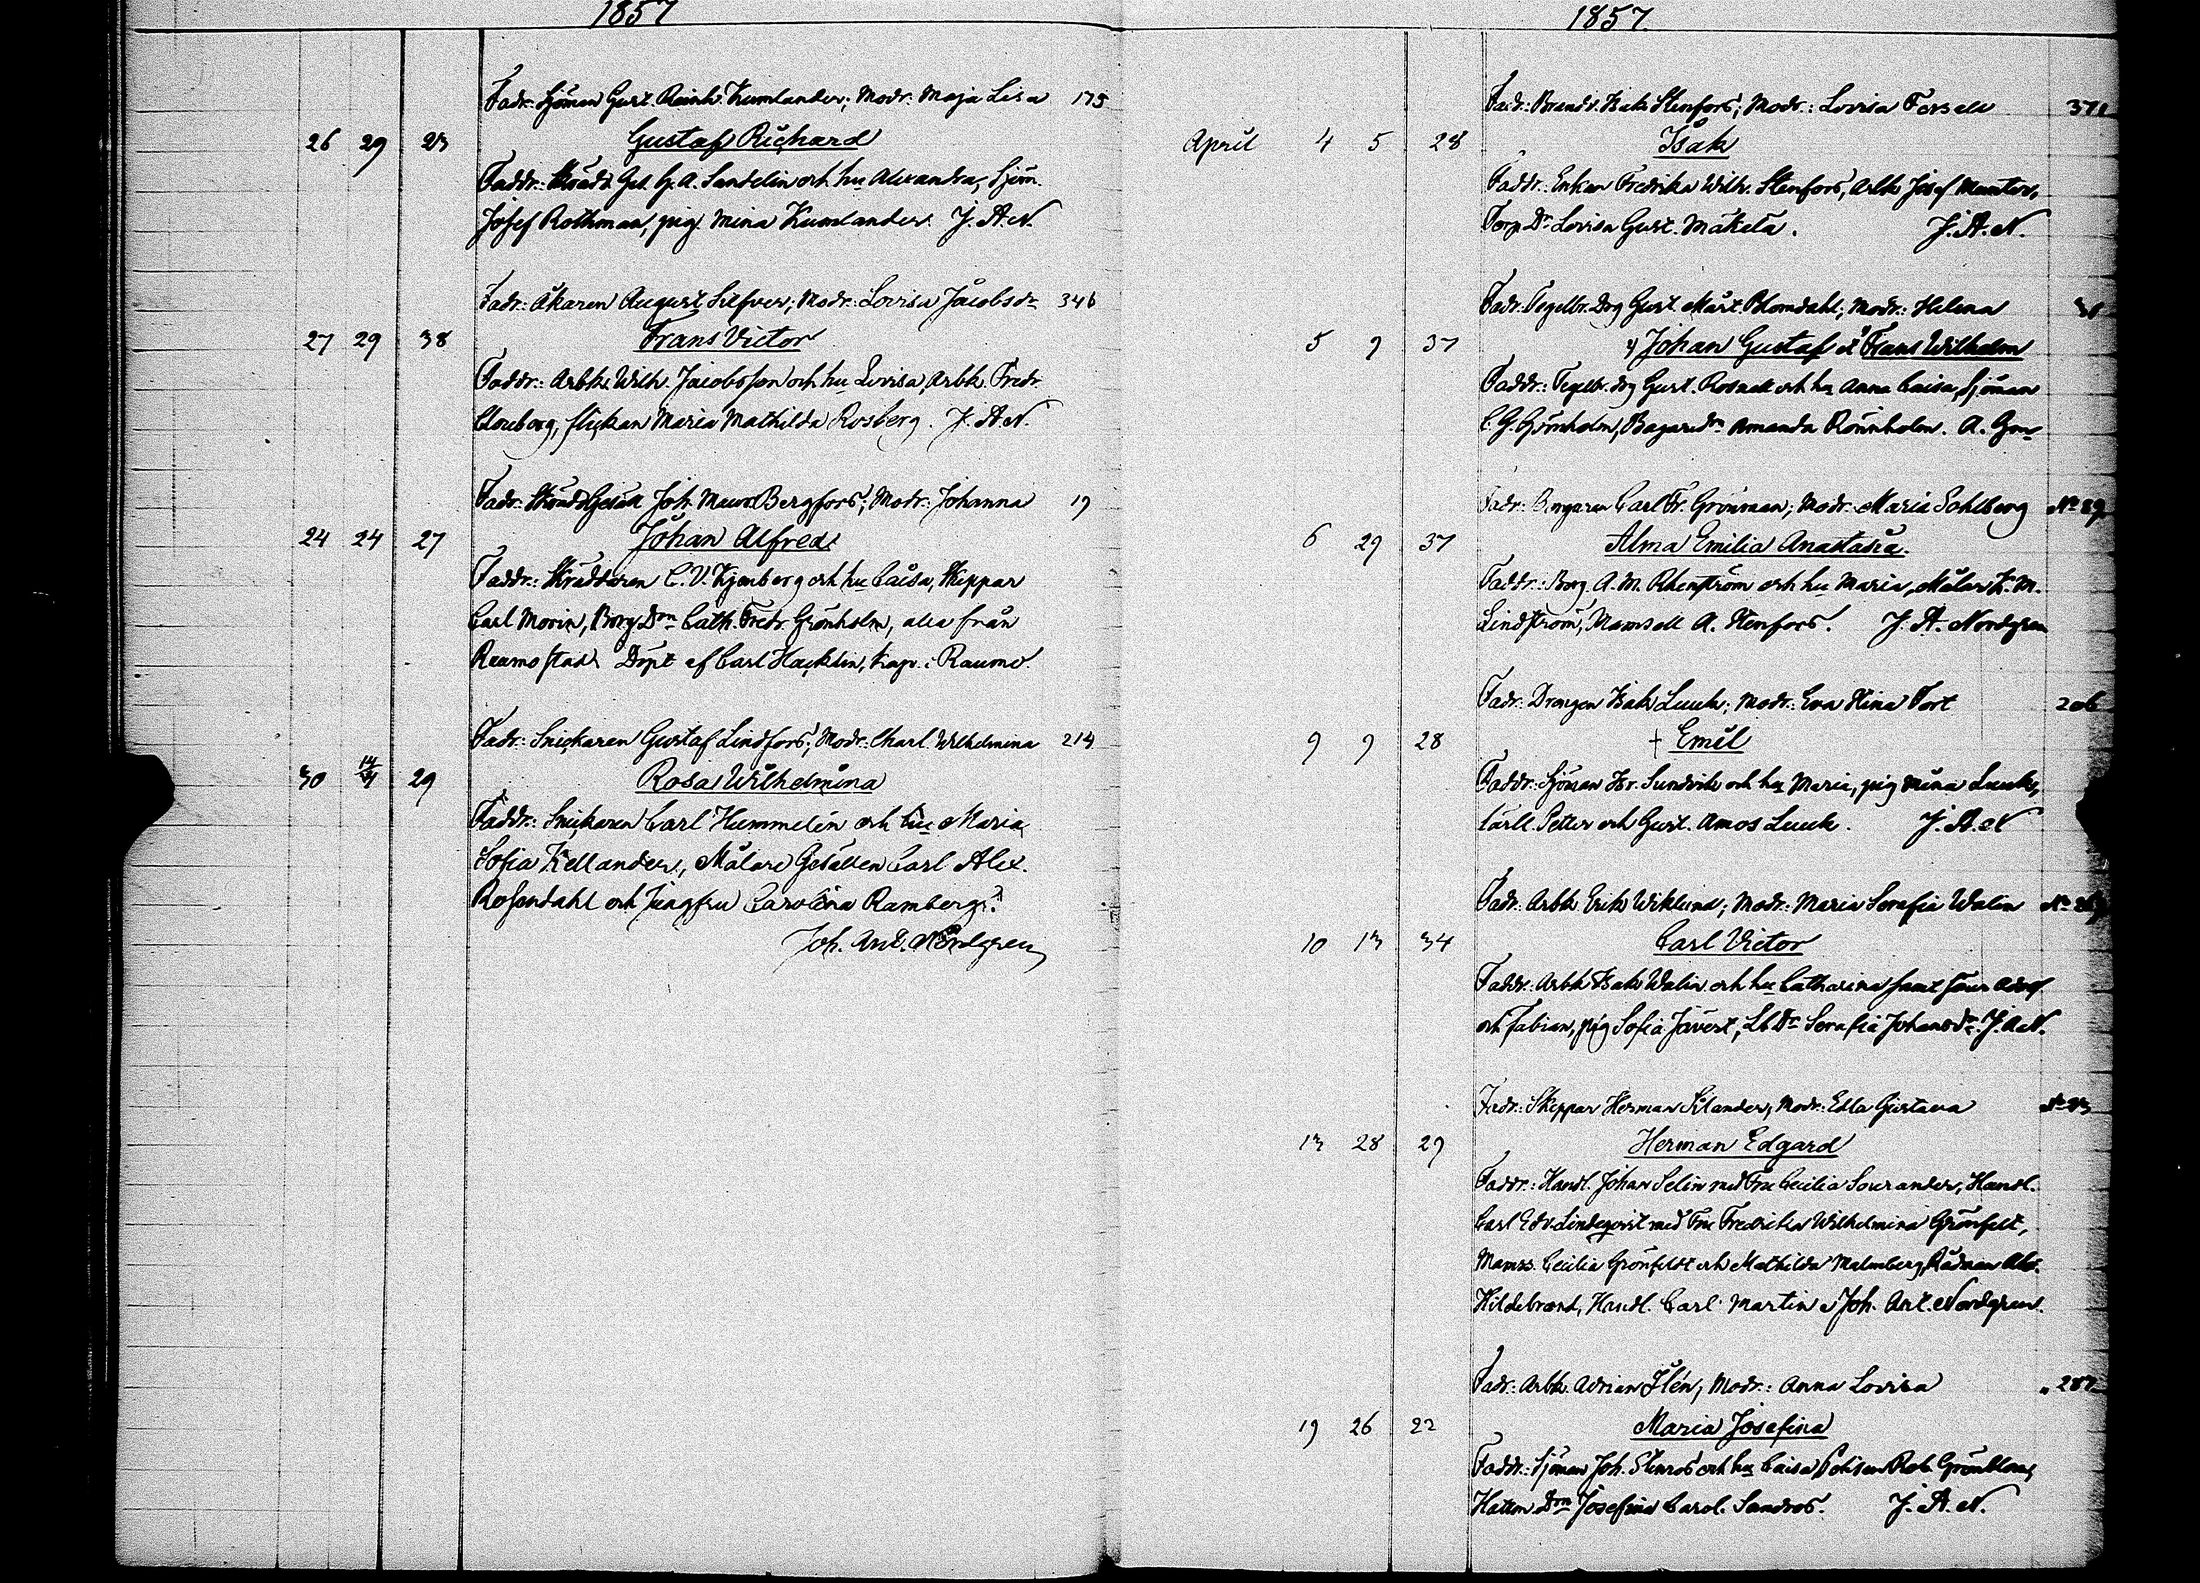 1857
Fadr: Sjöman Gust. Reinh. Kumlander; Modr: Maja Lisa 175
26 29 23 Gustaf Richard
Faddr: Skrädd. Ges. G. A. Sandelin och hu Alexandra, Sjöm.
Josef Rothman, pig. Mina Kumlander. J. A. N.
Fadr: Åkaren August Silfver; Modr: Lovisa Jacobsdr 346
27 29 38 Frans Victor
Faddr: Arbk. Wilh. Jacobsson och hu Lovisa, Arbk. Fredr.
flickan Maria Mathilda Rosberg. J. A. N.
Fadr: Joh. Bergfors; Modr: Johanna 19
24 24 27 Johan Alfred
Faddr: Skräddaren C. V. och hu Caisa, Skeppar
Carl Morin, Borg. Drn Cath. Fredr. Grönholm, alla från
Raumo stad. Döpt af Carl Hacklin, kap. i Raumo.
Fadr: Snickaren Gustaf Lindfors; Modr: Charl. Wilhelmina 214
30 14/4 29 Rosa Wilhelmina
Faddr: Snickaren Carl Hummelin och hu Maria
Sofia Kellander, Målare Gesällen Carl Alex.
Rosendahl och Jungfru Carolina Ramberg.
Joh. Ant. Nordgren
1857.
Fadr: Brandv. Isak Stenfors; Modr: Lovisa Forsell
April 4 5 28 Isak
Faddr: Enkan Fredrika Wilh. Stenfors, Arbk. Josef
Torp. Dr Lovisa Gust. Mäkelä. J. A. N.
Fadr: Tegelbr. Drg Gust. Mårt. Blomdahl; Modr: Helena
5 9 37 1) Johan Gustaf 2) Frans Wilhelm
Faddr: Tegelbr. drg Gust. Rosnell och hu Anna Caisa, Sjöman
C. G. Grönholm, Bagaredn Amanda Rönnholm.
Fadr: Borgaren Carl Fr. Grönman; Modr: Maria Sohlberg No 89
6 29 37 Alma Emilia Anastasia.
Faddr: Borg. A. M. Rhenström och hu Maria, Målar K. M.
Lindström, Mamsell A. Stenfors. J. A. Nordgren
Fadr: Drengen Isak Luuk; Modr: Eva Stina Tort 206
9 9 28 + Emil
Faddr: Sjöman Kr. Sundvik och hu Maria, pig Mina Luuk,
Carl Petter och Gust. Amos Luuk. J. A. N
Fadr: Arbk. Erik Wiklund; Modr: Maria Serafia Walin
10 13 34 Carl Victor
Faddr: Arbk Isak Walin och hu Catharina samt söner Adolf
och Fabian, pig Sofia Javert, Lb Dr Serafia Johansdr. J. A. N.
Fadr: Skeppar Herman Silander; Modr: Edla Gustava
13 28 29 Herman Edgard
Faddr: Handl. Johan Selin med Fru Cecilia Sourander, Handl.
Carl Edv. Lindeqvist med Fru Fredrika Wilhelmina Grönfelt,
Mamss. Cecilia Grönfeldt och Mathilda Malmberg, Rådman
Hildebrand, Handl. Carl Martin. Joh. Ant. Nordgren.
Fadr: Arbk. Adrian Flén; Modr: Anna Lovisa
19 26 22 Maria Josefina
Faddr: Sjöman Joh. Stenros och hu Caisa,
Josefina Carol. Sandros. J. A. N.